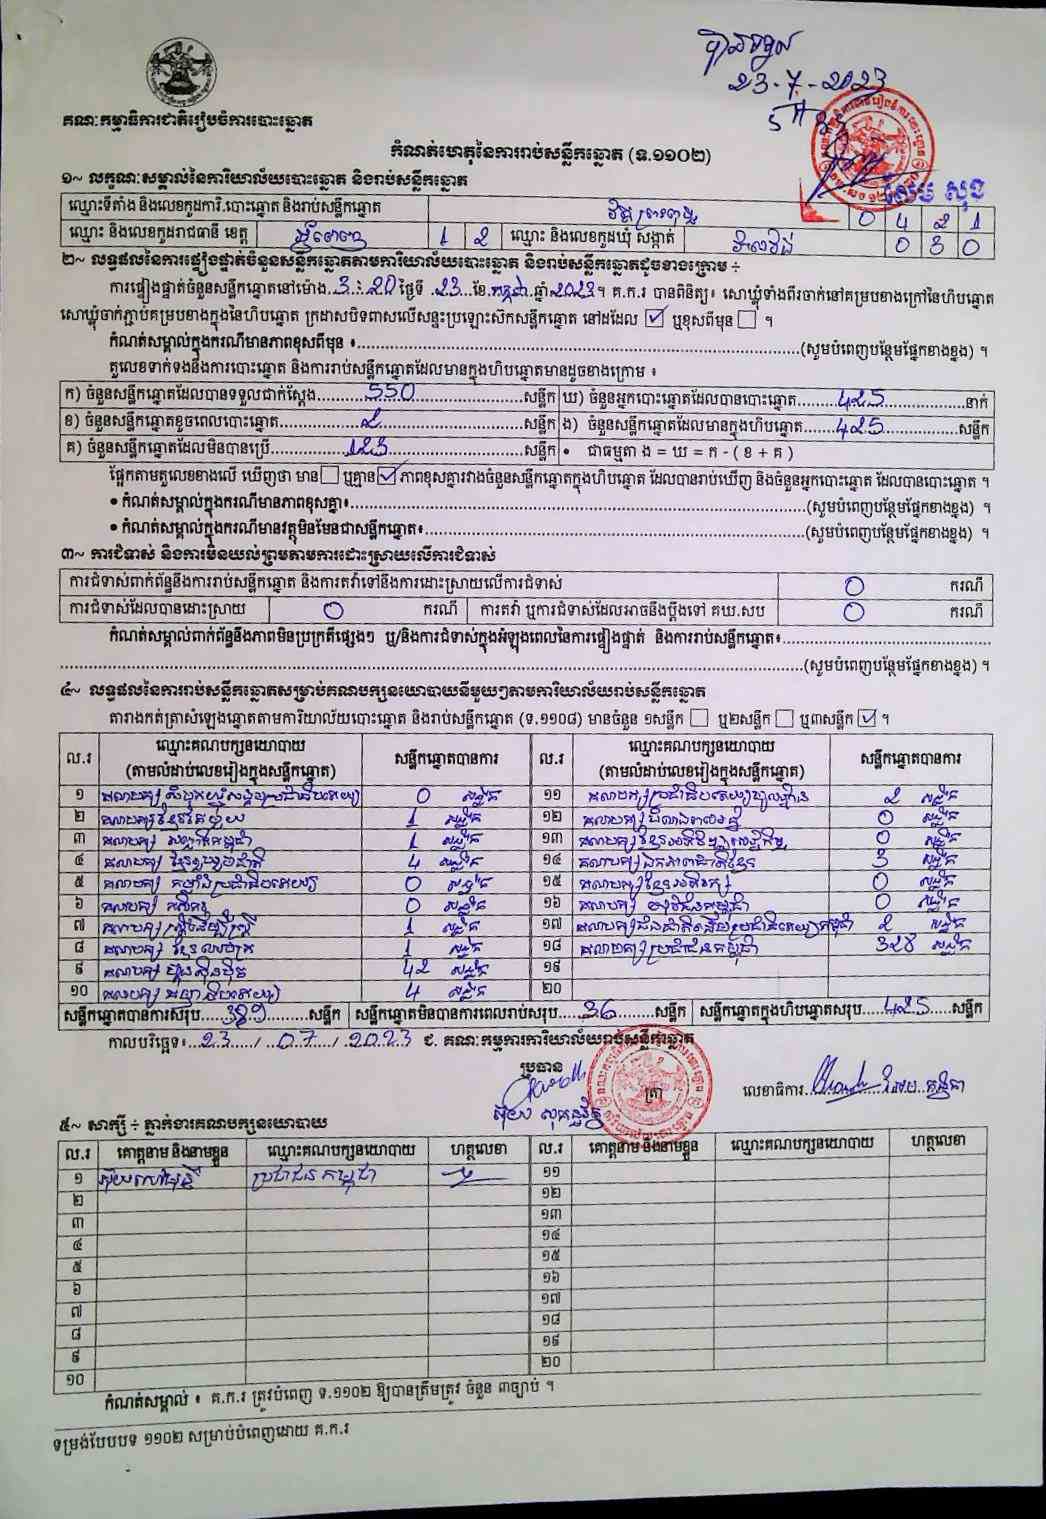 បានទទួល
23-7-2023
គណៈកម្មាធិការជាតិរៀបចំការបោះឆ្នោត
កំណត់ហេតុនៃការរាប់សន្លឹកឆ្នោត (ទ.១១០២)
១~ លក្ខណៈសម្គាល់នៃការិយាល័យបោះឆ្នោត និងរាប់សន្លឹកឆ្នោត
ឈ្មោះទីតាំង និងលេខកូដការិ.បោះឆ្នោត និងរាប់សន្លឹកឆ្នោត 0 4 2 1
ឈ្មោះ និងលេខកូដរាជធានី ខេត្ត 1 2 ឈ្មោះ និងលេខកូដឃុំ សង្កាត់ 0 3 0
២~ លទ្ធផលនៃការផ្ទៀងផ្ទាត់ចំនួនសន្លឹកឆ្នោតតាមការិយាល័យបោះឆ្នោត និងរាប់សន្លឹកឆ្នោតដូចខាងក្រោម ÷
ការផ្ទៀងផ្ទាត់ចំនួនសន្លឹកឆ្នោតនៅម៉ោង 3:20 ថ្ងៃទី 23 ខែ កក្កដា ឆ្នាំ 2023 ។ គ.ក.រ បានពិនិត្យ៖ សោឃ្លុំទាំងពីរចាក់នៅគម្របខាងក្រៅនៃហិបឆ្នោត
សោឃ្លុំចាក់ភ្ជាប់គម្របខាងក្នុងនៃហិបឆ្នោត ក្រដាសបិទពាសលើសន្ទះប្រឡោះសិកសន្លឹកឆ្នោត នៅដដែល ☑ ឬខុសពីមុន ☐ ។
កំណត់សម្គាល់ក្នុងករណីមានភាពខុសពីមុន ៖ (សូមបំពេញបន្ថែមផ្នែកខាងខ្នង) ។
តួលេខទាក់ទងនឹងការបោះឆ្នោត និងការរាប់សន្លឹកឆ្នោតដែលមានក្នុងហិបឆ្នោតមានដូចខាងក្រោម ៖
ក) ចំនួនសន្លឹកឆ្នោតដែលបានទទួលជាក់ស្តែង 550 សន្លឹក ឃ) ចំនួនអ្នកបោះឆ្នោតដែលបានបោះឆ្នោត 425 នាក់
ខ) ចំនួនសន្លឹកឆ្នោតខូចពេលបោះឆ្នោត 2 សន្លឹក ង) ចំនួនសន្លឹកឆ្នោតដែលមានក្នុងហិបឆ្នោត 425 សន្លឹក
គ) ចំនួនសន្លឹកឆ្នោតដែលមិនបានប្រើ 123 សន្លឹក • ជាធម្មតា ង = ឃ = ក - ( ខ + គ )
ផ្អែកតាមតួលេខខាងលើ ឃើញថា មាន ☐ ឬគ្មាន ☑ ភាពខុសគ្នារវាងចំនួនសន្លឹកឆ្នោតក្នុងហិបឆ្នោត ដែលបានរាប់ឃើញ និងចំនួនអ្នកបោះឆ្នោត ដែលបានបោះឆ្នោត ។
• កំណត់សម្គាល់ក្នុងករណីមានភាពខុសគ្នា៖ (សូមបំពេញបន្ថែមផ្នែកខាងខ្នង) ។
• កំណត់សម្គាល់ក្នុងករណីមានវត្ថុមិនមែនជាសន្លឹកឆ្នោត៖ (សូមបំពេញបន្ថែមផ្នែកខាងខ្នង) ។
៣~ ការជំទាស់ និងការមិនយល់ព្រមតាមការដោះស្រាយលើការជំទាស់
ការជំទាស់ពាក់ព័ន្ធនឹងការរាប់សន្លឹកឆ្នោត និងការតវ៉ាទៅនឹងការដោះស្រាយលើការជំទាស់ 0 ករណី
ការជំទាស់ដែលបានដោះស្រាយ 0 ករណី ការតវ៉ា ឬការជំទាស់ដែលអាចនឹងប្តឹងទៅ គឃ.សប 0 ករណី
កំណត់សម្គាល់ពាក់ព័ន្ធនឹងភាពមិនប្រក្រតីផ្សេងៗ ឬ/និងការជំទាស់ក្នុងអំឡុងពេលនៃការផ្ទៀងផ្ទាត់ និងការរាប់សន្លឹកឆ្នោត៖
(សូមបំពេញបន្ថែមផ្នែកខាងខ្នង) ។
៤~ លទ្ធផលនៃការរាប់សន្លឹកឆ្នោតសម្រាប់គណបក្សនយោបាយនីមួយៗតាមការិយាល័យរាប់សន្លឹកឆ្នោត
តារាងកត់ត្រាសំឡេងឆ្នោតតាមការិយាល័យបោះឆ្នោត និងរាប់សន្លឹកឆ្នោត (ទ.១១០៨) មានចំនួន ១សន្លឹក ☐ ឬ២សន្លឹក ☐ ឬ៣សន្លឹក ☑ ។
ល.រ ឈ្មោះគណបក្សនយោបាយ (តាមលំដាប់លេខរៀងក្នុងសន្លឹកឆ្នោត) សន្លឹកឆ្នោតបានការ ល.រ ឈ្មោះគណបក្សនយោបាយ (តាមលំដាប់លេខរៀងក្នុងសន្លឹកឆ្នោត) សន្លឹកឆ្នោតបានការ
១ គណបក្ស សំបុកឃ្មុំសង្គមប្រជាធិបតេយ្យ 0 សន្លឹក ១១ គណបក្សប្រជាធិបតេយ្យមូលដ្ឋាន 2 សន្លឹក
២ គណបក្សខ្មែរតែមួយ 1 សន្លឹក ១២ 0 សន្លឹក
៣ គណបក្ស 1 សន្លឹក ១៣ គណបក្សខ្មែរអភិវឌ្ឍន៍សេដ្ឋកិច្ច 0 សន្លឹក
៤ គណបក្ស ខ្មែររួបរួមជាតិ 4 សន្លឹក ១៤ គណបក្សឯកភាពជាតិខ្មែរ 3 សន្លឹក
៥ គណបក្ស កម្លាំងប្រជាធិបតេយ្យ 0 សន្លឹក ១៥ គណបក្សខ្មែរអភិរក្ស 0 សន្លឹក
៦ គណបក្ស កសិករ 0 សន្លឹក ១៦ គណបក្ស យុវជនកម្ពុជា 0 សន្លឹក
៧ គណបក្ស ស្ត្រីដើម្បីស្ត្រី 1 សន្លឹក ១៧ គណបក្សជនជាតិដើមប្រជាធិបតេយ្យកម្ពុជា 2 សន្លឹក
៨ គណបក្ស ខ្មែរឈប់ក្រ 1 សន្លឹក ១៨ គណបក្សប្រជាជនកម្ពុជា 328 សន្លឹក
៩ គណបក្ស ហ្វ៊ុនស៊ិនប៉ិច 42 សន្លឹក ១៩
១០ គណបក្ស ធម្មាធិបតេយ្យ 4 សន្លឹក ២០
សន្លឹកឆ្នោតបានការសរុប 389 សន្លឹក សន្លឹកឆ្នោតមិនបានការពេលរាប់សរុប 36 សន្លឹក សន្លឹកឆ្នោតក្នុងហិបឆ្នោតសរុប 425 សន្លឹក
កាលបរិច្ឆេទ៖ 23 / 07 / 2023 ជ. គណៈកម្មការការិយាល័យរាប់សន្លឹកឆ្នោត
ប្រធាន ត្រា លេខាធិការ
៥~ សាក្សី ÷ ភ្នាក់ងារគណបក្សនយោបាយ
ល.រ គោត្តនាម និងនាមខ្លួន ឈ្មោះគណបក្សនយោបាយ ហត្ថលេខា ល.រ គោត្តនាម និងនាមខ្លួន ឈ្មោះគណបក្សនយោបាយ ហត្ថលេខា
១ ប្រជាជនកម្ពុជា ១១
២ ១២
៣ ១៣
៤ ១៤
៥ ១៥
៦ ១៦
៧ ១៧
៨ ១៨
៩ ១៩
១០ ២០
កំណត់សម្គាល់ ៖ គ.ក.រ ត្រូវបំពេញ ទ.១១០២ ឱ្យបានត្រឹមត្រូវ ចំនួន ៣ច្បាប់ ។
ទម្រង់បែបបទ ១១០២ សម្រាប់បំពេញដោយ គ.ក.រ